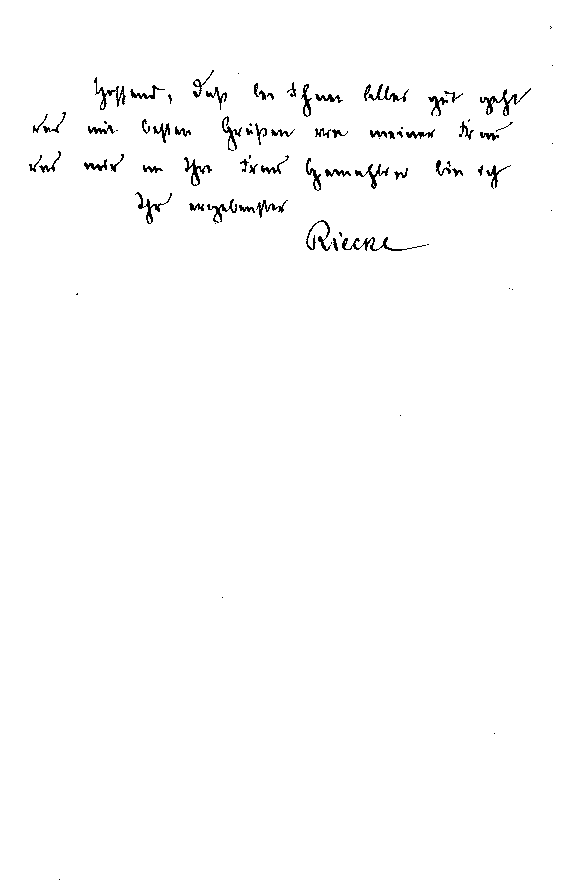 Hoffend, daß bei Ihnen Alles gut geht
und mit besten Grüßen von meiner Frau
und mir an Ihre Frau Gemahlin bin ich
Ihr ergebenster
Riecke